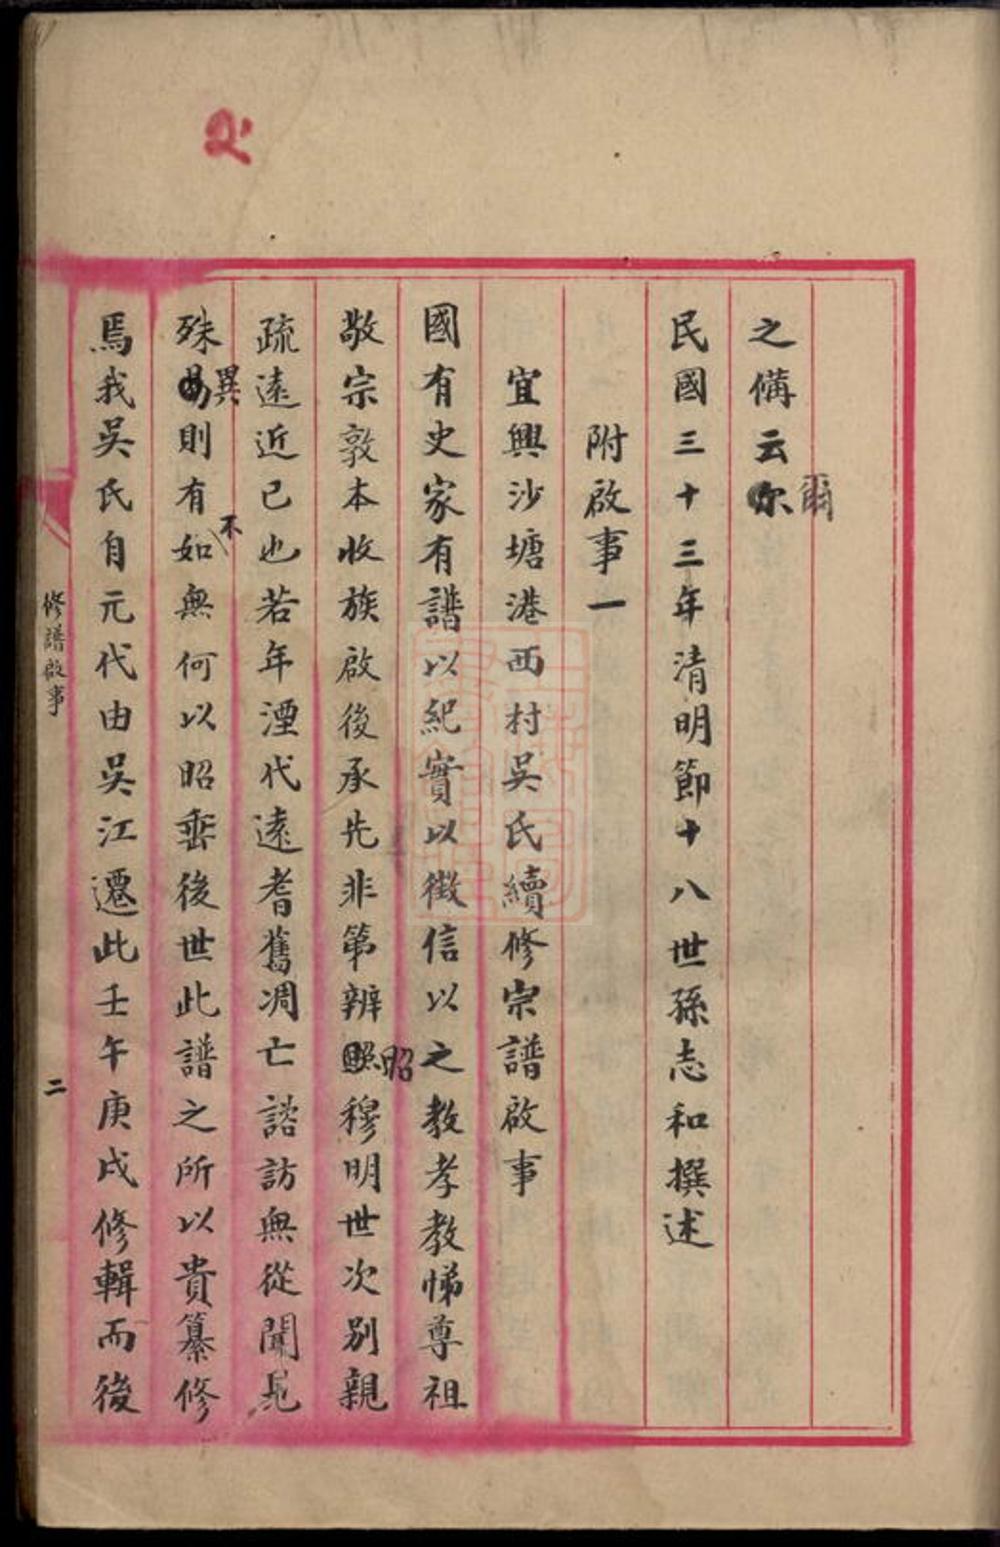 之備云尔爾
民國三十三年清明節十八世孫志和撰述
附啟事一
宜興沙塘港西村吳氏續修宗譜啟事
國有史家有譜以紀實以徵信以之教孝教悌尊祖
敬宗敦本收族啟後承先非第辨照昭穆明世次別親
疏遠近已也若年湮代遠耆舊凋亡諮訪無從聞見
殊易異則有如不無何以昭垂後世此譜之所以貴纂修
焉我吳氏自元代由吳江遷此壬午庚戌修輯而後
修譜啟事
二